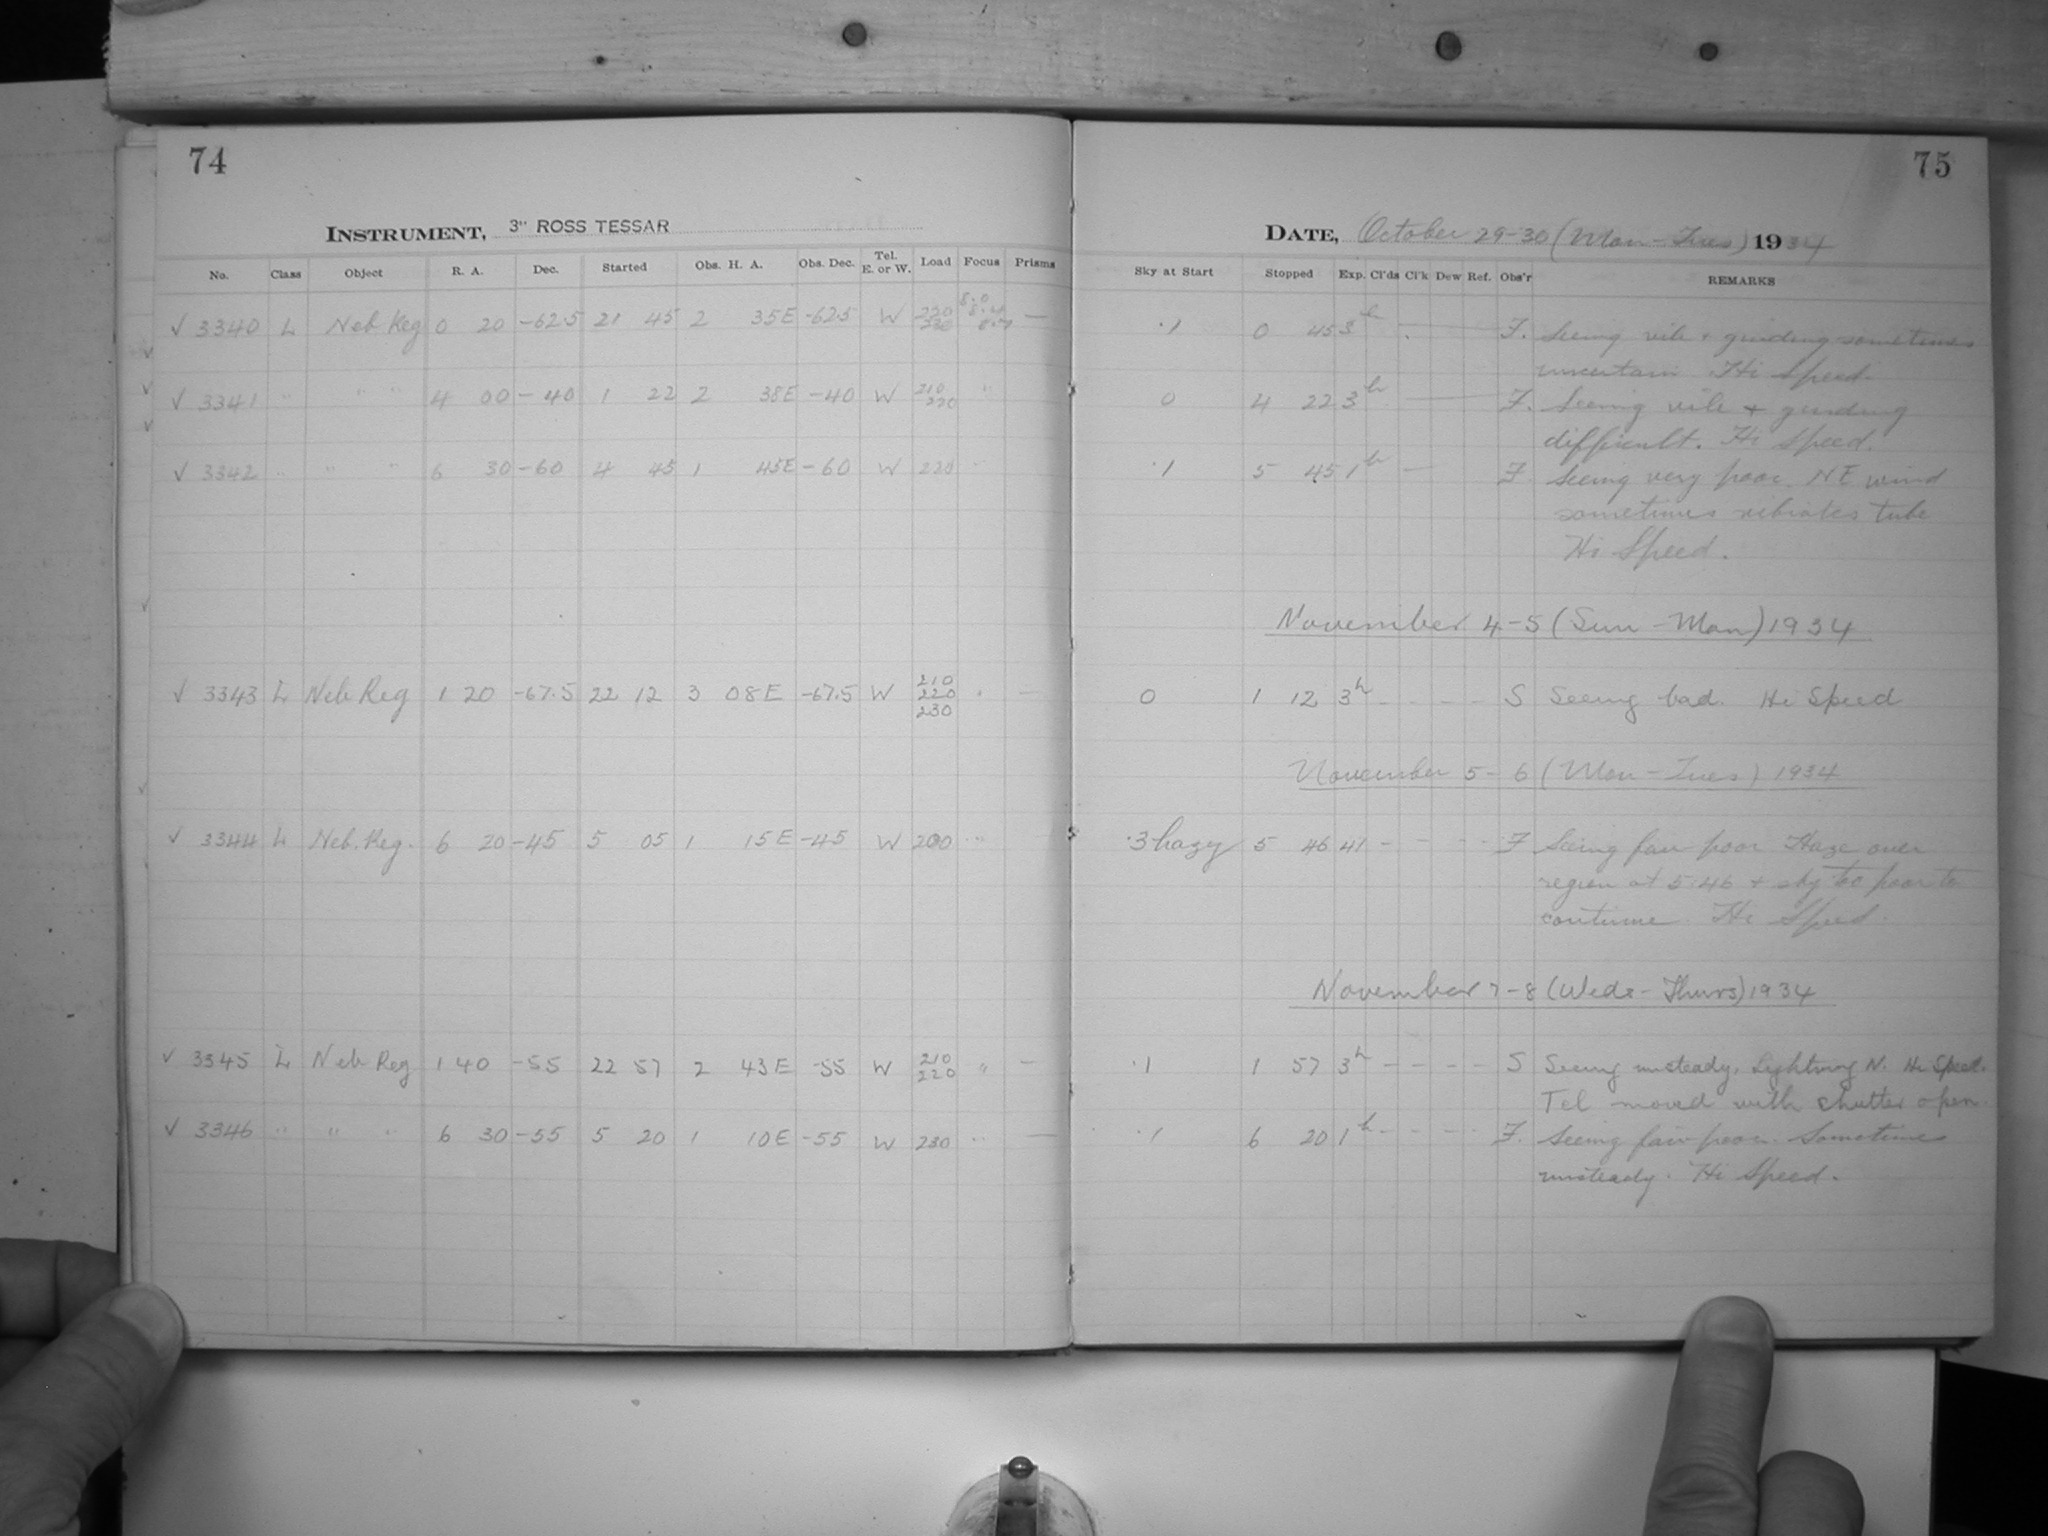 74
INSTRUMENT, 3" ROSS TESSAR
No. Class Object R. A. Dec. Started Obs. H. A. Obs. Dec. Tel. E. or W. Load Focus Prisms
✓ 3340 L Neb Reg 0 20 -62.5 21 45 2 35E -62.5 W 220 230 —
✓ 3341 " " " 4 00 -40 1 22 2 38E -40 W 210 220 "
✓ 3342 " " " 6 30 -60 4 45 1 45E -60 W 220 "
✓ 3343 L Neb Reg 1 20 -67.5 22 12 3 08E -67.5 W 210 220 230 " —
✓ 3344 L Neb. Reg. 6 20 -45 5 05 1 15E -45 W 200 "
✓ 3345 L Neb Reg 1 40 -55 22 57 2 43E -55 W 210 220 " —
✓ 3346 " " " 6 30 -55 5 20 1 10E -55 W 230 " —
75
DATE, October 29-30 (Mon-Tues) 1934
Sky at Start Stopped Exp. Cl'ds Cl'k Dew Ref. Obs'r REMARKS
.1 0 45 3h — F. Seeing vile + guiding sometimes
uncertain. Hi Speed.
0 4 22 3h — F. Seeing vile + guiding
difficult. Hi Speed.
.1 5 45 1h — F. Seeing very poor. NE wind
sometimes vibrates tube
Hi Speed.
November 4-5 (Sun-Mon) 1934
0 1 12 3h - - - - S Seeing bad. Hi Speed
November 5-6 (Mon-Tues) 1934
.3 hazy 5 46 41 - - - - F Seeing fair-poor Haze over
region at 5:46 + sky too poor to
continue. Hi Speed.
November 7-8 (Weds-Thurs) 1934
.1 1 57 3h - - - - S Seeing unsteady. Lightning N. Hi Speed.
Tel moved with shutter open.
.1 6 20 1h - - - - F. Seeing fair-poor. Sometimes
unsteady. Hi Speed.